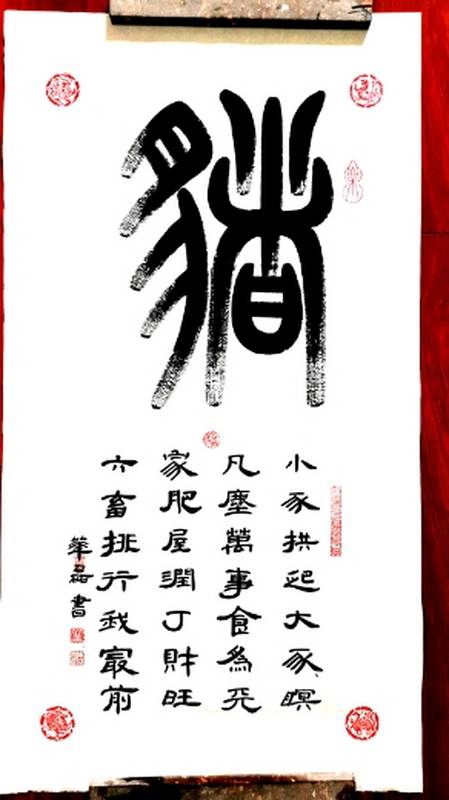 豬
小豕拱起大豕瞑
凡塵萬事食為天
家肥屋潤丁財旺
六畜排行我最前
華 書